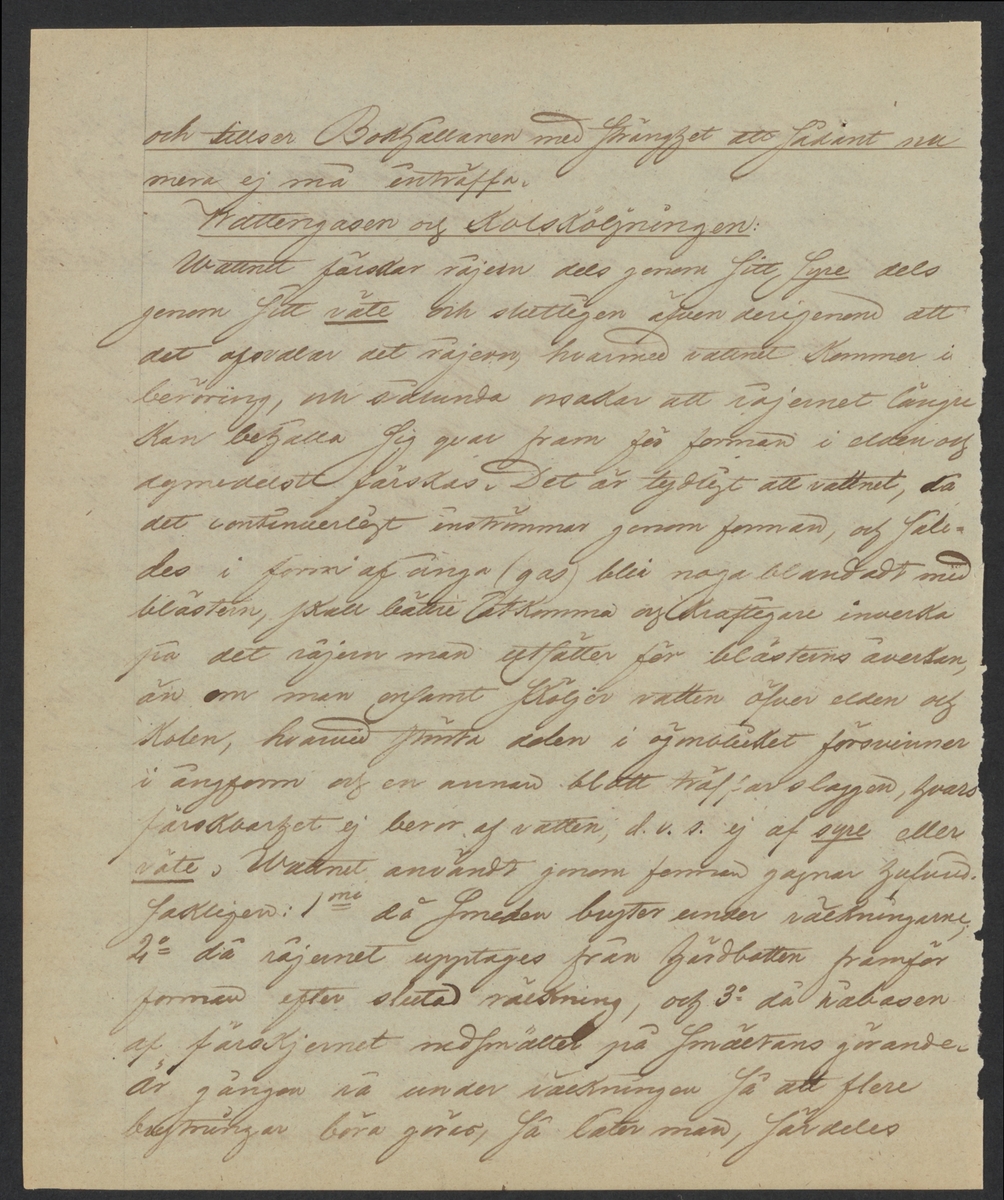 och tillser Bokhållaren med stränghet att sådant nu
mera ej må inträffa.
Vattengasen och Kolsköljningen:
Wattnet färskar råjern dels genom sitt syre dels
genom sitt väte och slutligen äfven derigenom att
det afsvalar det råjern, hvarmed vattnet kommer i
beröring, och sålunda orsakar att råjernet längre
kan behålla sig qvar fram för forman i elden och
dymedelst färskas. Det är tydligt att vattnet, då
det continuerligt inströmmar genom forman, och såle-
des i form af ånga (gas) blir noga blandadt med
blästern, skall bättre åtkomma och kraftigare inverka
på det råjern man utsätter för blästerns åverkan,
än om man ensamt sköljer vatten öfver elden och
Kolen, hvarvid största delen i ögonblicket försvinner
i ångform och en annan blott träffar slaggen, hvars
färskbarhet ej beror af vatten, d. v. s. ej af syre eller
väte. Wattnet användt genom forman gagnar hufvud-
sakligen: 1mo då Smeden bryter under räckningarne,
2o då råjernet upptages från härdbotten framför
forman efter slutad räckning, och 3o då råbasen
af färskjernet nedsmälter på Smältans görande.
Är gången rå under räckningen så att flere
brytningar böra göras, så låter man, särdeles